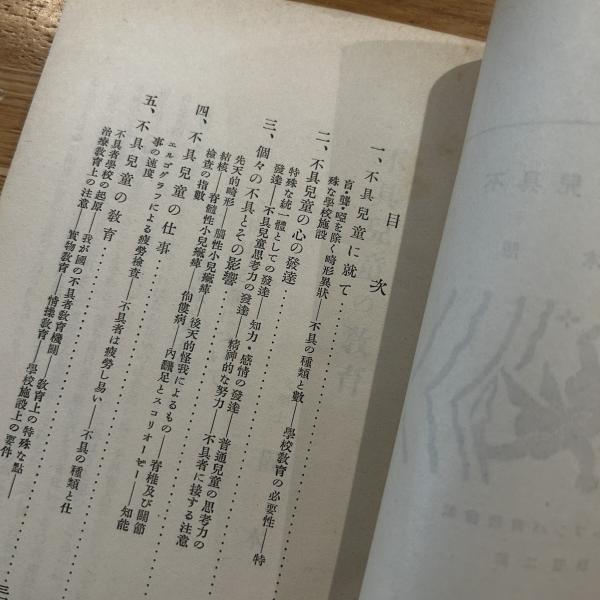 目次
一、不具兒童に就て
盲・聾・啞を除く畸形異狀――不具の種類と數――學校敎育の必要性――特
殊な學校施設
二、不具兒童の心の發達
特殊な統一體としての發達――知力・感情の發達――普通兒童の思考力の
發達――不具兒童思考力の發達――精神的な努力――不具者に接する注意
三、個々の不具とその影響
先天的畸形――後天的怪我によるもの――脊椎及び關節
結核――脊髓性小兒痲痺――腦性小兒痲痺――佝僂病――內飜足とスコリオーゼ――知能
檢査の指數
四、不具兒童の仕事
エルゴグラフによる疲勞檢査――不具者は疲勞し易い――不具の種類と仕
事の速度
五、不具兒童の敎育
不具者學校の起原――我が國の不具者敎育機關――敎育上の特殊な點――
治療敎育上の注意――實物敎育――情操敎育――學校施設上の要件